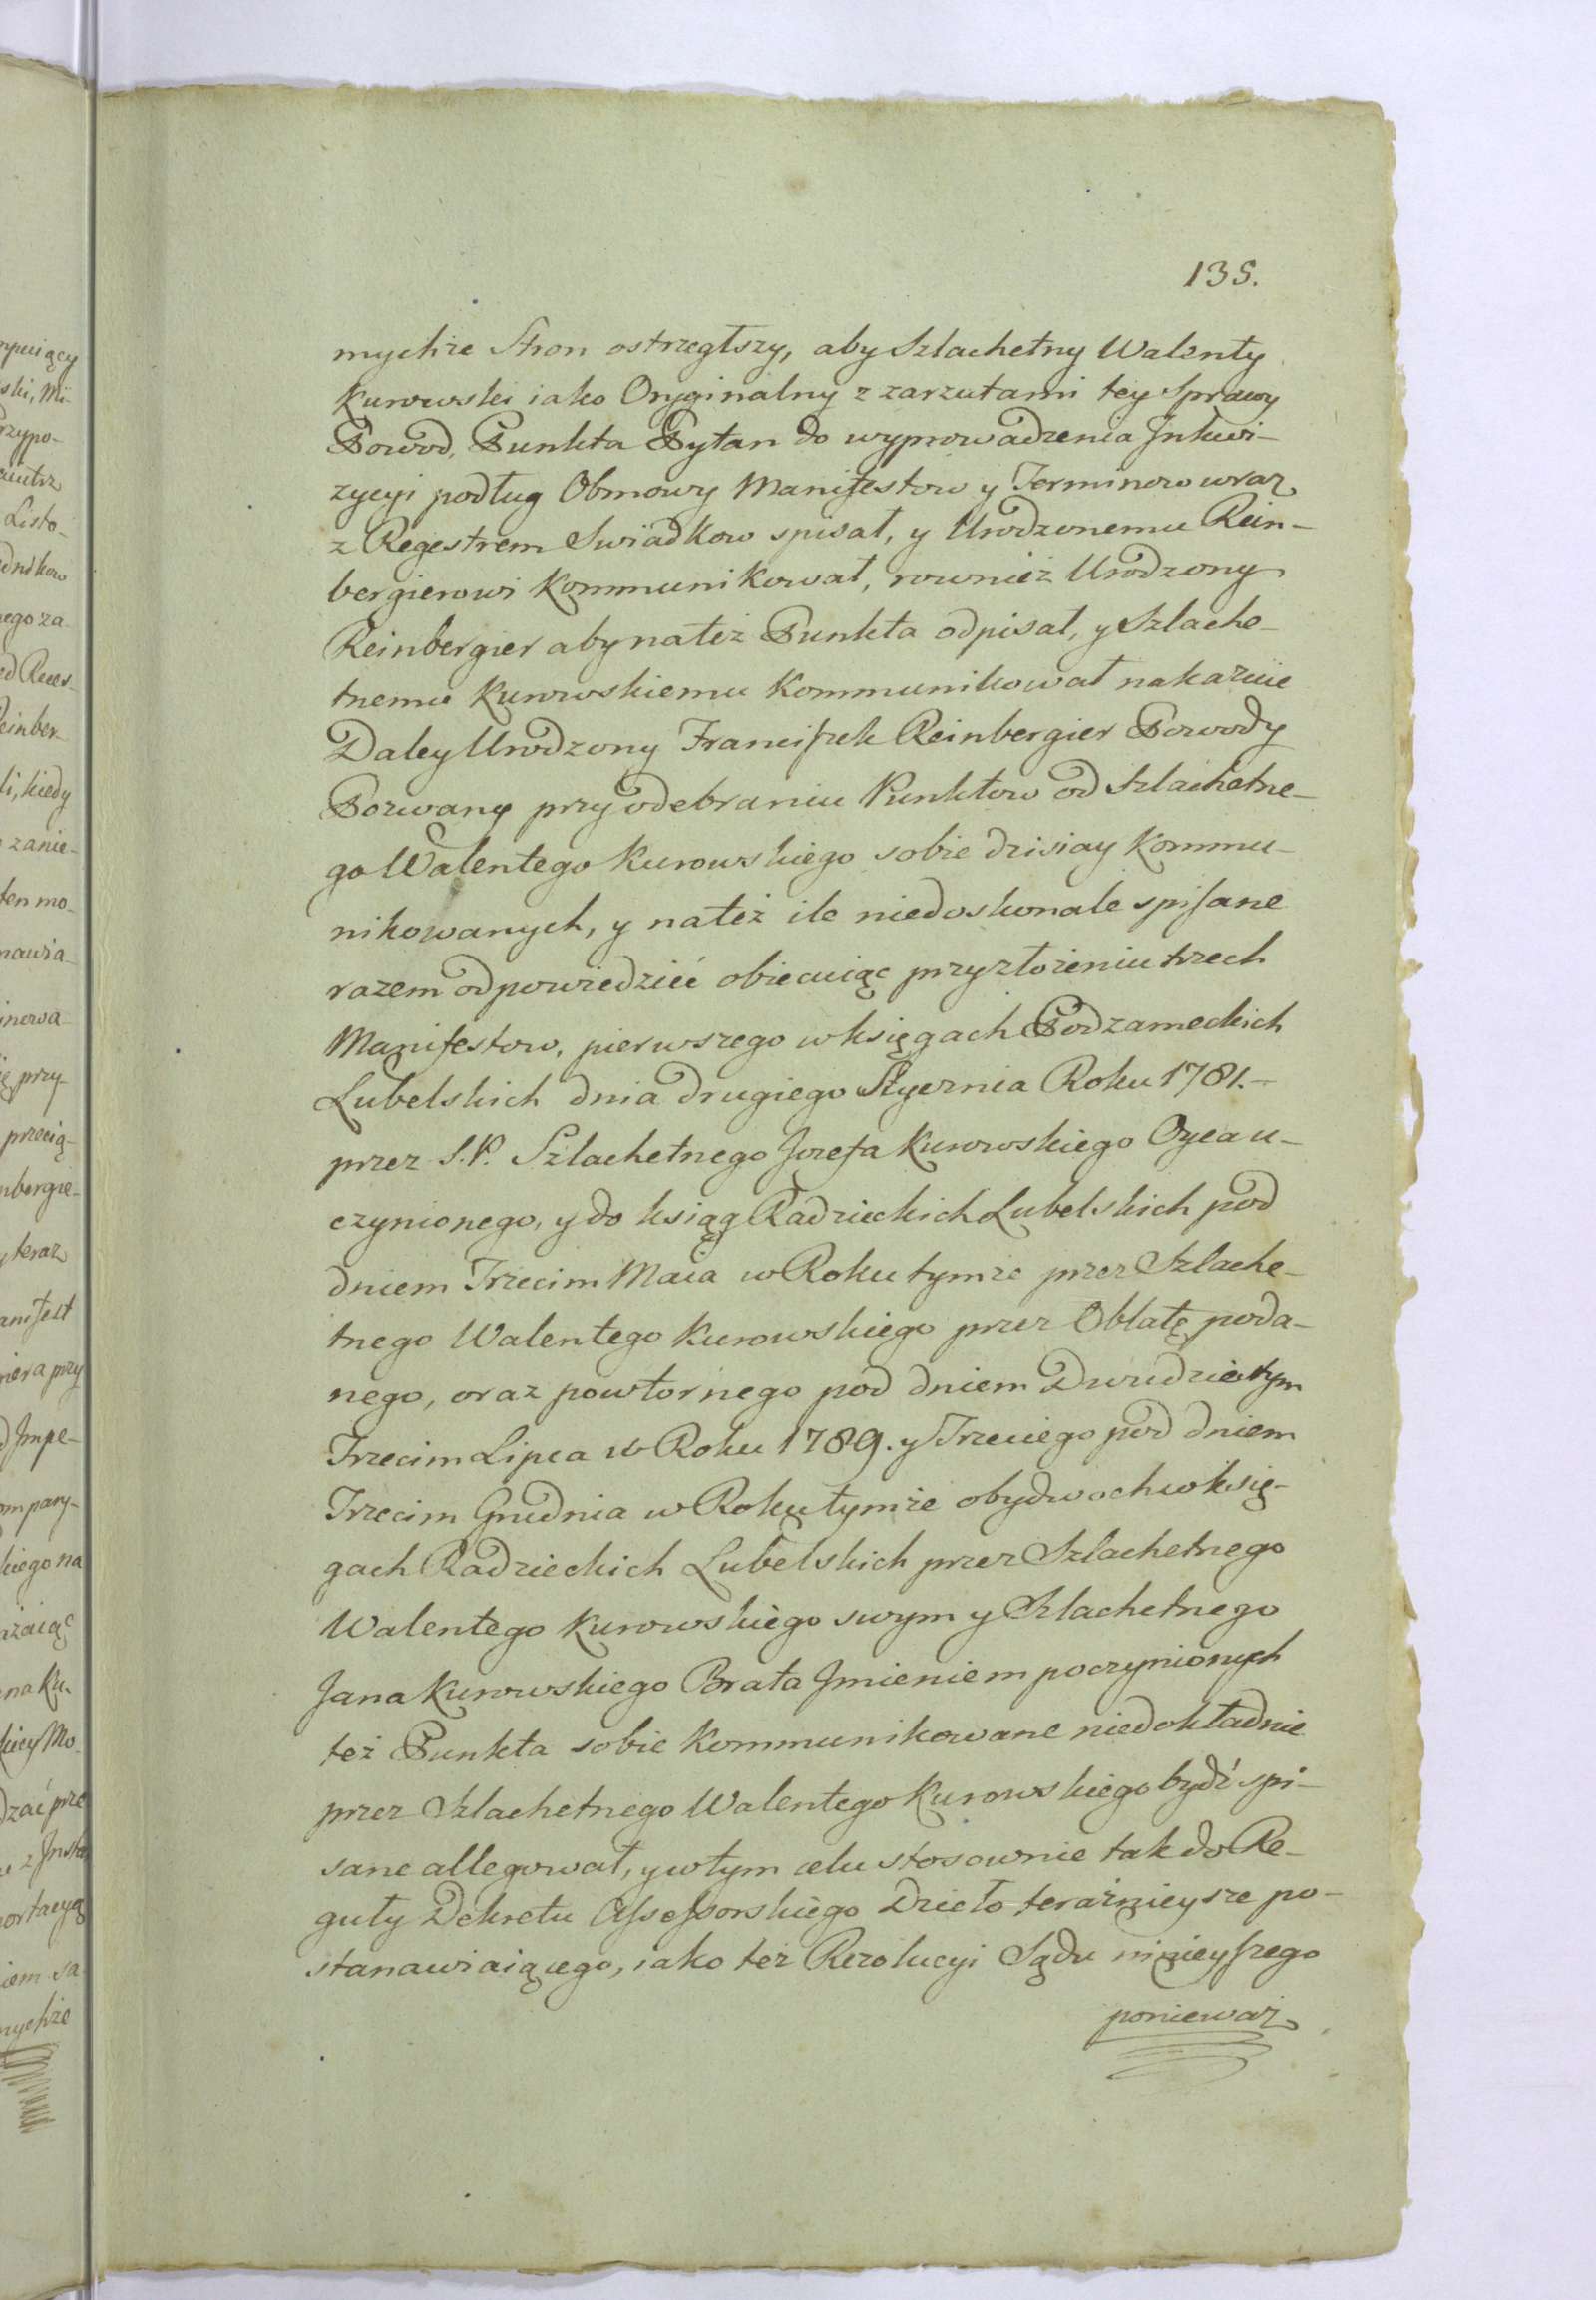 135.
mychże Stron ostrzegłszy, aby Szlachetny Walenty
Kurowski iako Oryginalny z zarzutami tey Sprawy
Powod, Punkta Pytan do wyprowadzenia Jnkwi-
zycyi podług Obmowy Manifestow y Terminow wraz
z Regestrem Swiadkow spisał, y Urodzonemu Rein-
bergierowi Kommunikował, rownież Urodzony
Reinbergier aby nateż Punkta odpisał, y Szlache-
tnemu Kurowskiemu Kommunikował nakazuie
Daley Urodzony Franciszek Reinbergier Powody
Pozwany przy odebraniu Punktow od Szlachetne-
go Walentego Kurowskiego sobie dzisiay Kommu-
nikowanych, y nateż ile niedoskonale spisane
razem odpowiedzieć obiecuiąc przyzłożeniu trzech
Manifestow, pierwszego w księgach Podzameckich
Lubelskich dnia drugiego Stycznia Roku 1781.-
przez S.P. Szlachetnego Jozefa Kurowskiego Oyca u-
czynionego, y do ksiąg Radzieckich Lubelskich pod
dniem Trzecim Maia w Roku tymze przez Szlache-
tnego Walentego Kurowskiego przez Oblatę poda-
nego, oraz powtornego pod dniem Dwudziestym
Trzecim Lipca w Roku 1789. y Trzeciego pod dniem
Trzecim Grudnia w Roku tymże obydwoch w księ-
gach Radzieckich Lubelskich przez Szlachetnego
Walentego Kurowskiego swym y Szlachetnego
Jana Kurowskiego Brata Jmieniem poczynionych
też Punkta sobie Kommunikowane niedokładnie
przez Szlachetnego Walentego Kurowskiego bydź spi-
sane allegował, y w tym celu stosownie tak do Re-
guły Dekretu Assessorskiego Dzieło teraźnieysze po-
stanawiaiącego, iako też Rezolucyi Sądu ninieyszego
ponieważ